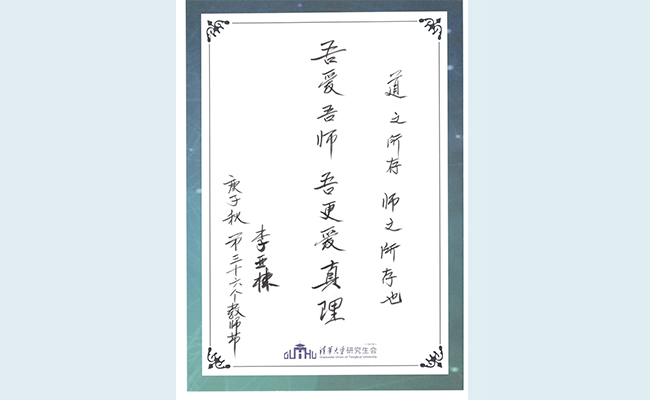 道之所存 师之所存也
吾爱吾师 吾更爱真理
李亚栋
庚子秋 第三十六个教师节
清华大学研究生会
Graduate Union of Tsinghua University